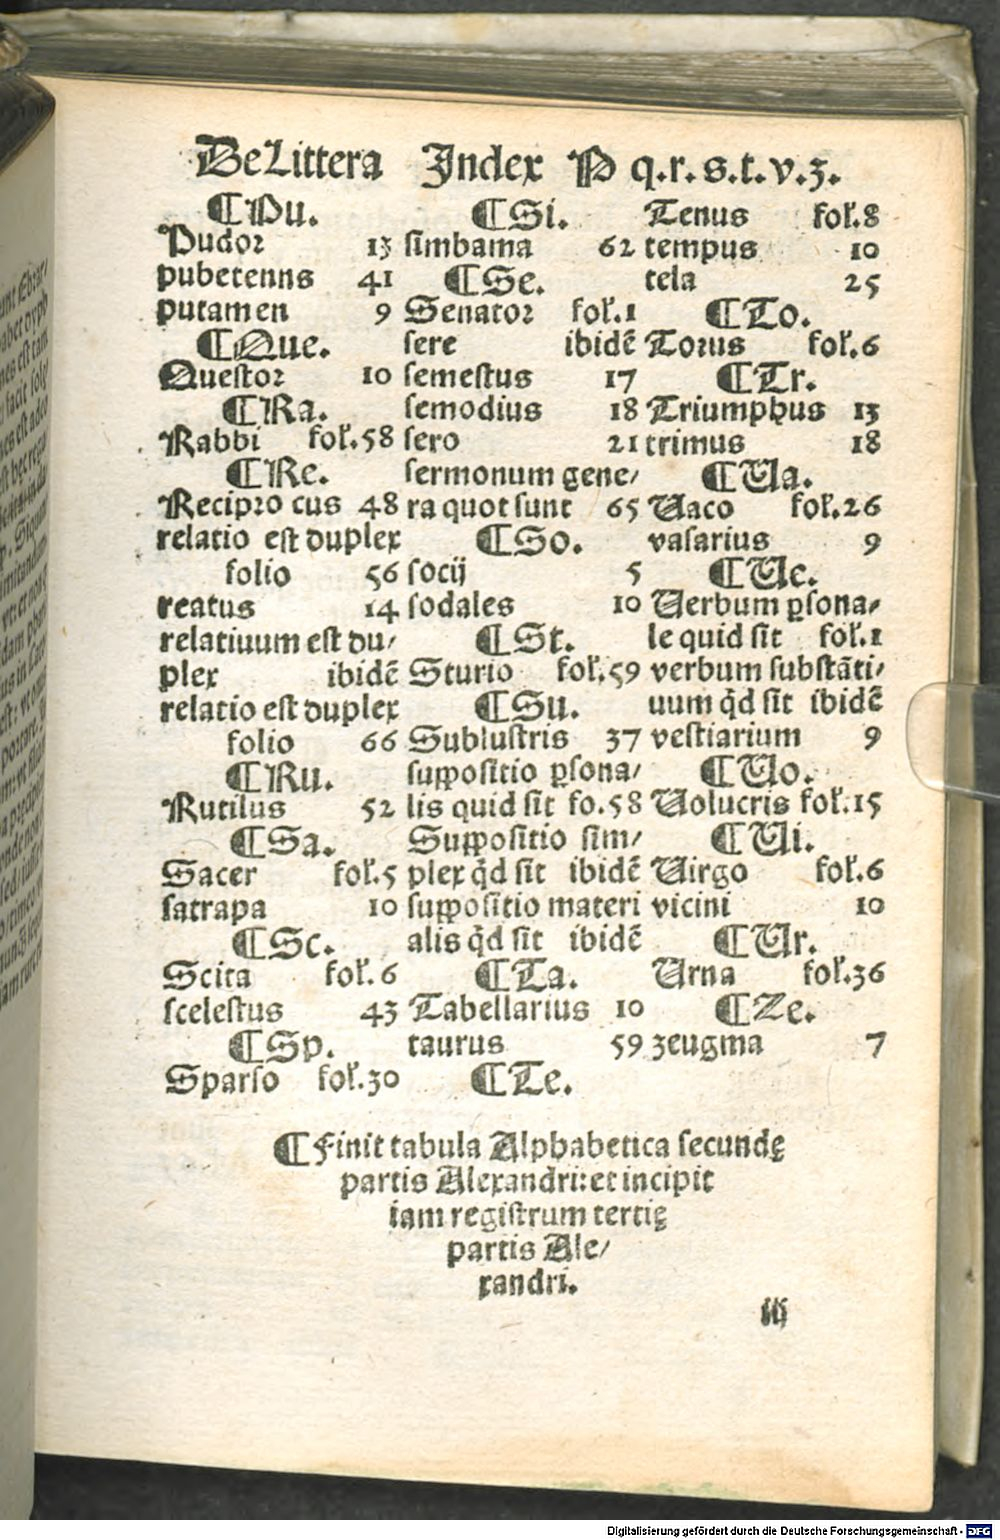 De Littera Index P q.r.s.t.v.z.
¶Pu.
Pudor 13
pubetenns 41
putamen 9
¶Que.
Questor 10
¶Ra.
Rabbi fol.58
¶Re.
Recipro cus 48
relatio est duplex
folio 56
reatus 14
relatiuum est du/
plex ibidē
relatio est duplex
folio 66
¶Ru.
Rutilus 52
¶Sa.
Sacer fol.5
satrapa 10
¶Sc.
Scita fol.6
scelestus 43
¶Sp.
Sparso fol.30
¶Si.
simbama 62
¶Se.
Senator fol.1
sere ibidē
semestus 17
semodius 18
sero 21
sermonum gene/
ra quot sunt 65
¶So.
socij 5
sodales 10
¶St.
Sturio fol.59
¶Su.
Sublustris 37
suppositio ꝑsona/
lis quid sit fo.58
Suppositio sim/
plex qd sit ibidē
suppositio materi
alis qd sit ibidē
¶Ta.
Tabellarius 10
taurus 59
¶Te.
Tenus fol.8
tempus 10
tela 25
¶To.
Torus fol.6
¶Tr.
Triumphus 13
trimus 18
¶Ua.
Uaco fol.26
vasarius 9
¶Ue.
Uerbum ꝑsona/
le quid sit fol.1
verbum substāti/
uum qd sit ibidē
vestiarium 9
¶Uo.
Uolucris fol.15
¶Ui.
Uirgo fol.6
vicini 10
¶Ur.
Urna fol.36
¶Ze.
zeugma 7
¶Finit tabula Alphabetica secundę
partis Alexandri: et incipit
iam registrum tertię
partis Ale/
xandri.
Digitalisierung gefördert durch die Deutsche Forschungsgemeinschaft - DFG